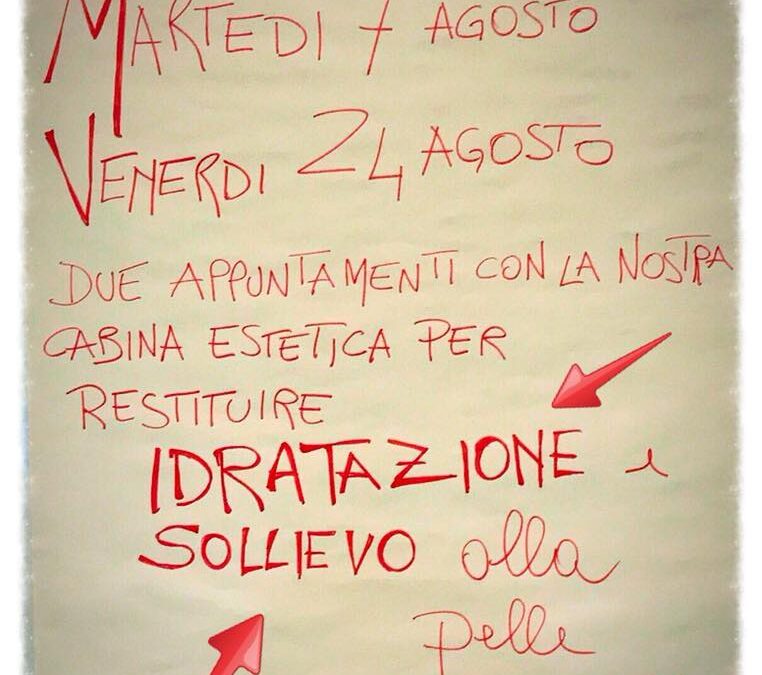 MARTEDI 7 AGOSTO
VENERDI 24 AGOSTO
DUE APPUNTAMENTI CON LA NOSTRA
CABINA ESTETICA PER
RESTITUIRE
IDRATAZIONE e
SOLLIEVO alla
pelle